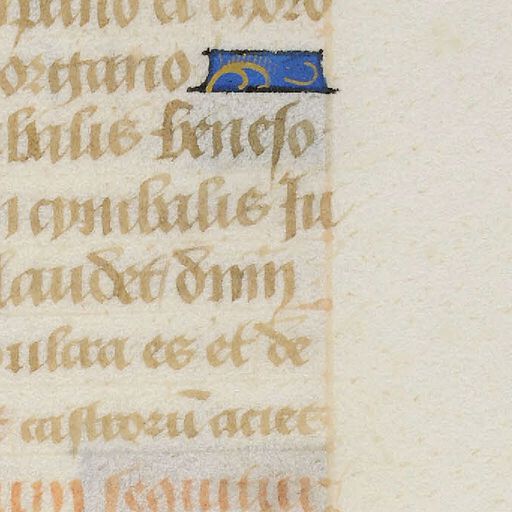 pano et choro
organo
balis beneso
n cymbalis Ju
laudet dnm
pulcra es et de
castrorū acies
um sequitur